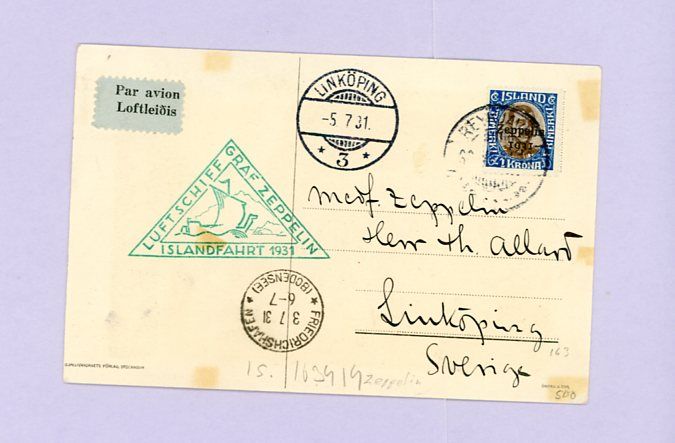 Par avion
Loftleiðis
LINKÖPING
-5.7.31.
* 3 *
ÍSLAND
Zeppelin
1931
1 KRONA
LUFTSCHIFF GRAF ZEPPELIN
ISLANDFAHRT 1931
med. Zeppelin
Herr Th. Allard
Linköping
Sverige
FRIEDRICHSHAFEN
3 7 31
6-7
* (BODENSEE) *
163
Zeppelin
500